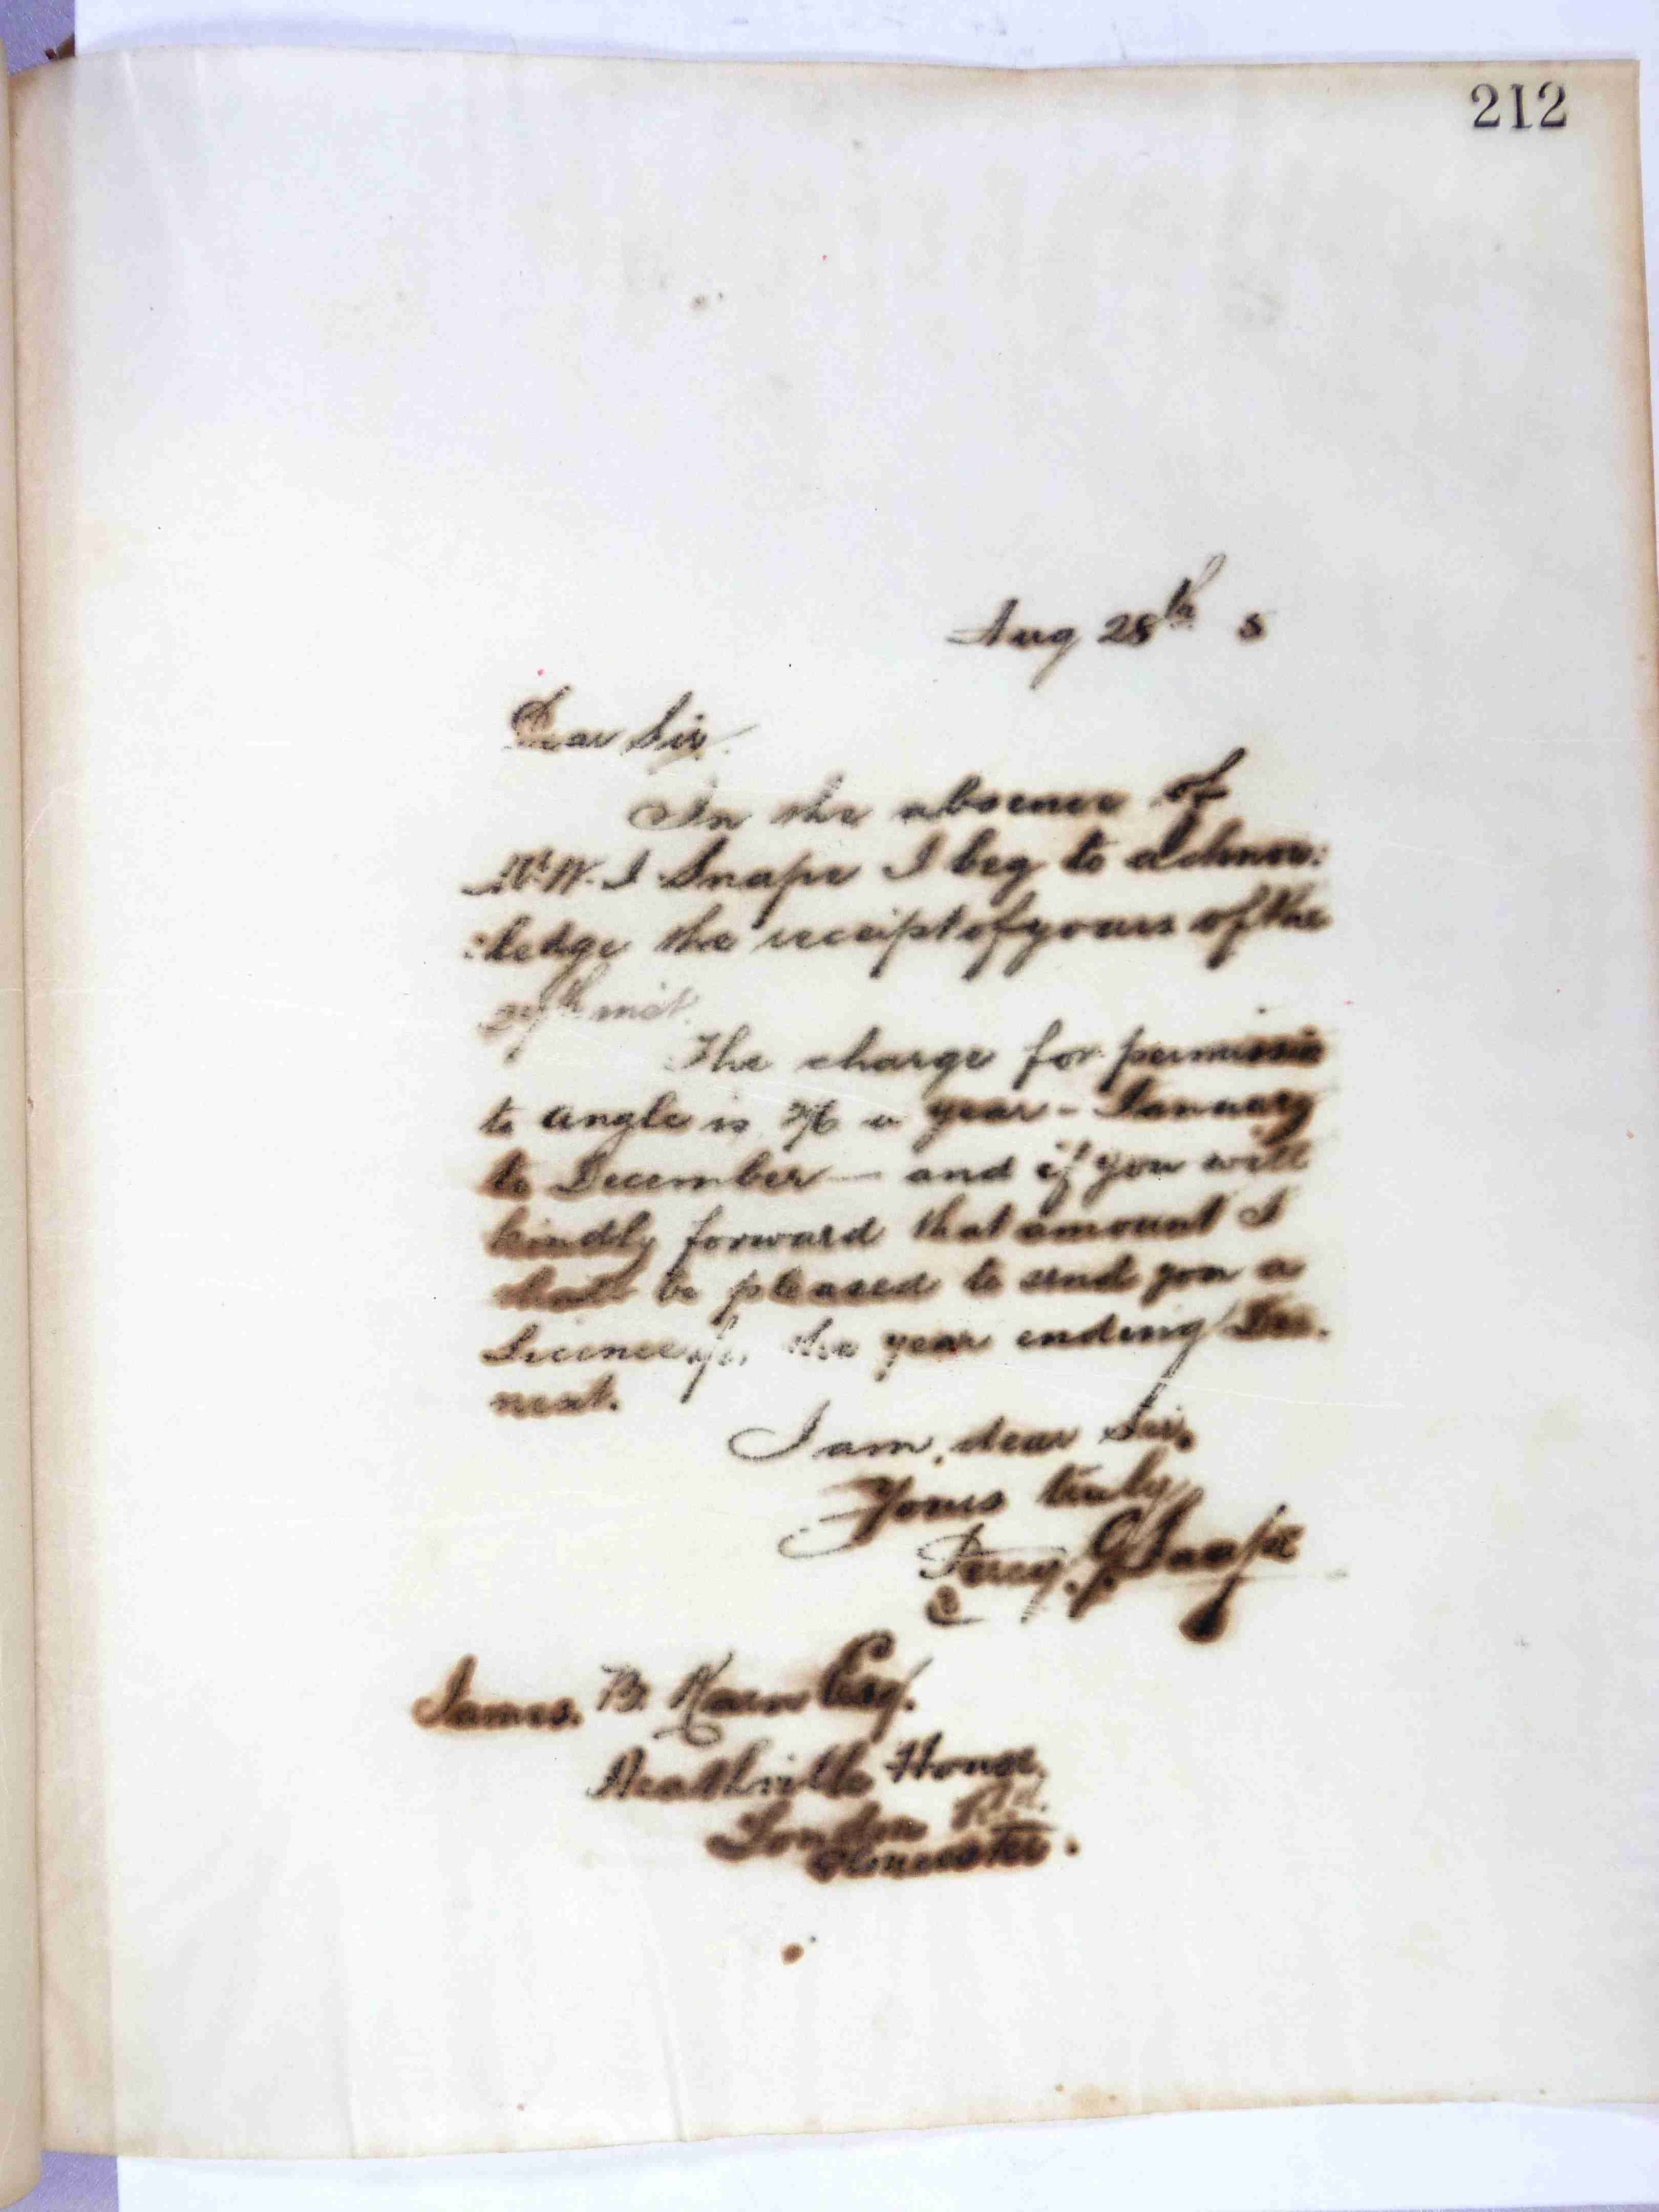 212
Aug 28th 5
Dear Sir.
In the absence of
Mr W. J Snape I beg to acknow:
:ledge the receipt of yours of the
27th inst.
The charge for permissio
to angle is 2/6 a year - January
to December — and if you will
kindly forward that amount I
shall be pleased to send you a
Licence for the year ending Dec.
next.
I am, dear Sir.
Yours truly
Percy. G Snape
James. B. Karn Esq.
Heathville House,
London Rd.
Gloucester.